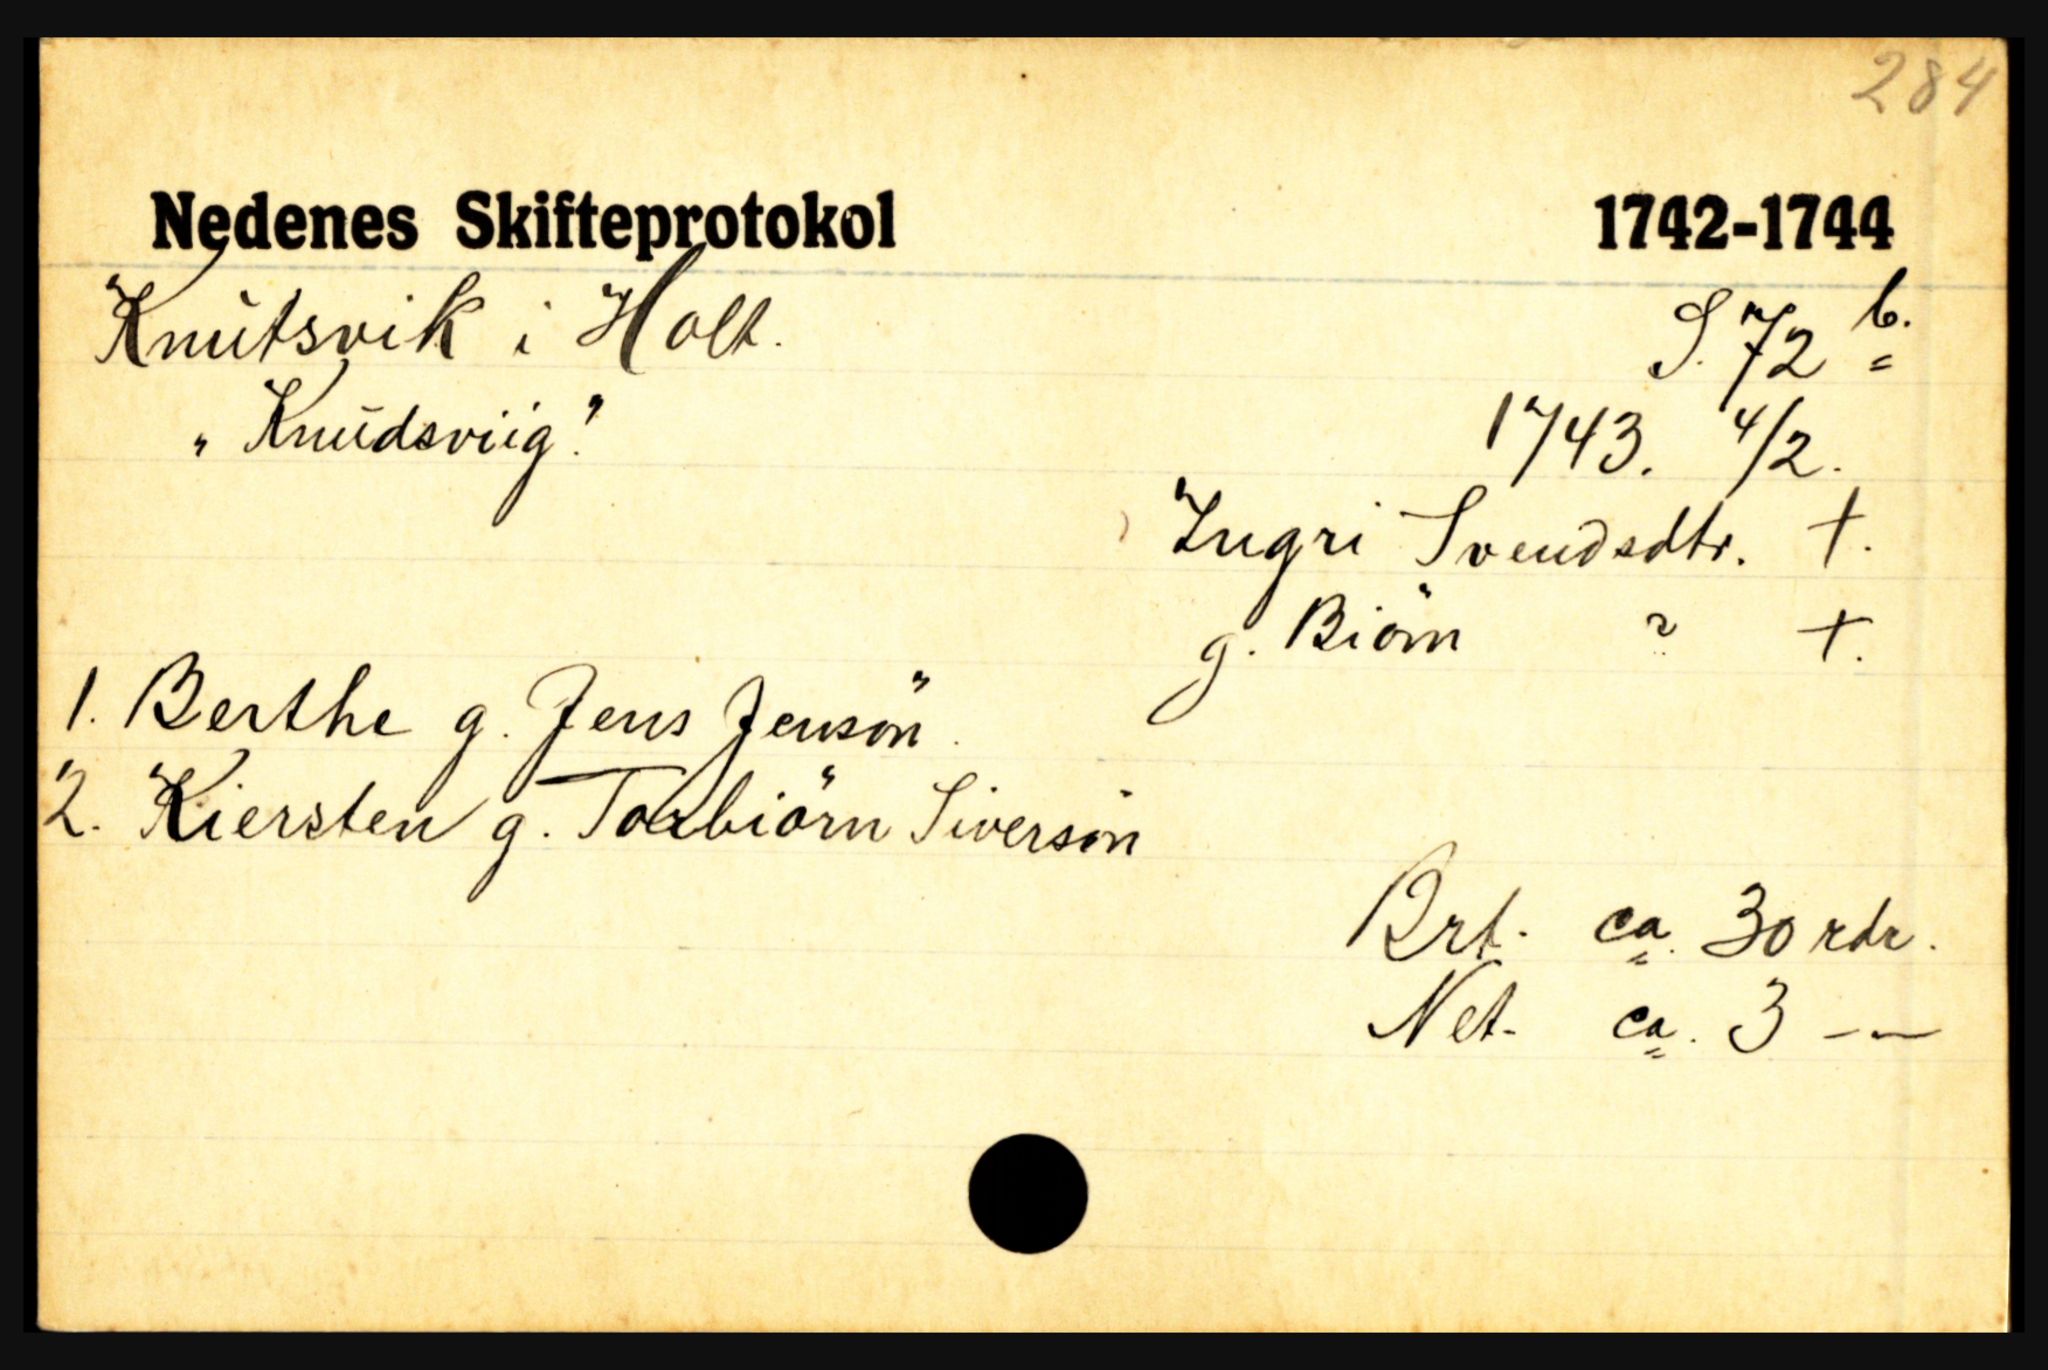 284
Nedenes Skifteprotokol 1742-1744
Knutsvik i Holt. S. 72 b.
„Knudsviig." 1743. 4/2.
Ingri Svendsdtr. †.
g. Biörn ? †.
1. Berthe g. Jens Jensön.
2. Kiersten g. Torbiörn Siversön
Brt. ca. 30 rdr.
Net. ca. 3 — —